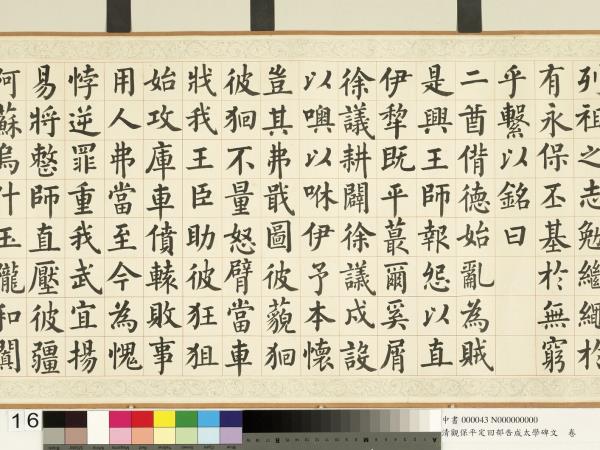 列祖之志勉繼繩於
有永保丕基於無窮
乎繫以銘曰
二酋僣德始亂為賊
是興王師報怨以直
伊犂既平蕞爾奚屑
徐議耕闢徐議戍設
以噢以咻伊予本懷
豈其弗戢圖彼藐
彼不量怒臂當車
戕我王臣助彼狂狙
始攻庫車僨轅敗事
用人弗當至今為愧
悖逆罪重我武宜揚
易將整師直壓彼疆
阿蘇烏什玉隴和闐
16
中書 000043 N000000000
清觀保平定回部告成太學碑文 卷